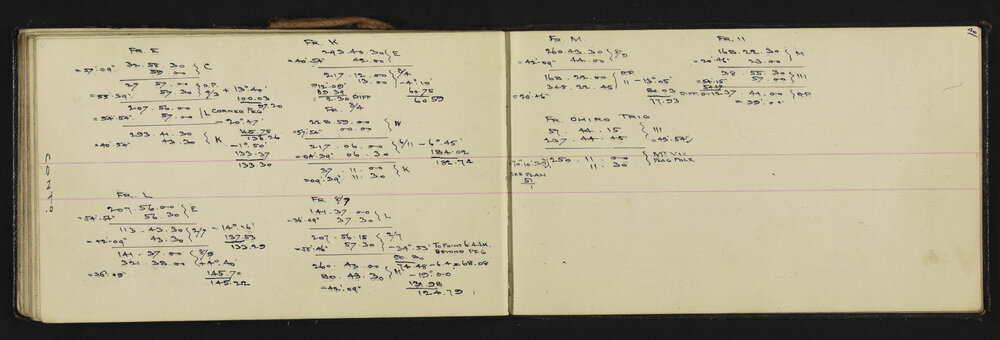 FR. E
32. 58. 30 } C
= 57'. 09" 59. 00
27 57. 00 } O.P.
= 55'. 39" 57. 30 2/3 + 13°. 40'
100.03
97.20
207. 56. 00 } L CORNER PEG
= 54'. 54" 57. 00 - 20°. 47'
145.75
136.26
293. 41. 30 } K
= 40'. 54" 43. 30 - 1°. 50'
133.37
133.30
CONTD
FR. L
207. 56. 00 } E
= 54'. 54" 56. 30
113. 43. 30 } 2/7 - 14°. 16'
= 42'. 09" 43. 30 137.53
133.29
141. 37. 00 } 8/9
321. 38. 00 + 4°. 40'
= 36'. 09" 145.70
145.22
FR. K
293. 40. 30 } E
= 40'. 54" 42. 00
217. 12. 00 } 3/4
13. 00 - 4°. 10'
= 12'. 09" 60.75
09.39 60.59
2.30 DIFF
FR. 3/4
228. 59. 00 } W
= 57'. 54" 00. 00
217. 06. 00 } 6/11 - 6°. 45'
= 04'. 39" 06. 30 184.02
182.74
37. 11. 00 } K
= 09'. 39" 11. 30
FR. 8/9
141. 37. 00 } L
= 36'. 09" 37. 30
207. 56. 15 } 2/7
= 55'. 46" 57. 30 - 34°. 53' TO POINT 6.4 LK.
BEYOND PEG
90.80
74.48 - 6.4 = 68.08
260. 43. 00 } M
80. 43. 30 - 19°. 00'
= 42'. 09" 131.98
124.79
FR. M
260. 43. 30 } 8/9
= 42'. 09" 44. 00
168. 22. 00 } O.P.
348. 22. 45 11 - 13°. 05'
= 20'. 46" 80.03
77.93
FR. OHIRO TRIG
57 44. 15 } 111
237. 44. 45 = 43'. 54"
250. 11. 00 } MT VIC
11. 30 FLAG POLE
SEE PLAN
FR. 11
168. 22. 30 } M
= 20'. 46" 23. 00
38. 55. 30 } 111
= 54'. 15" 57. 00
DIFF 0. 12 37. 41. 00 } O.P.
= 39'. 00"